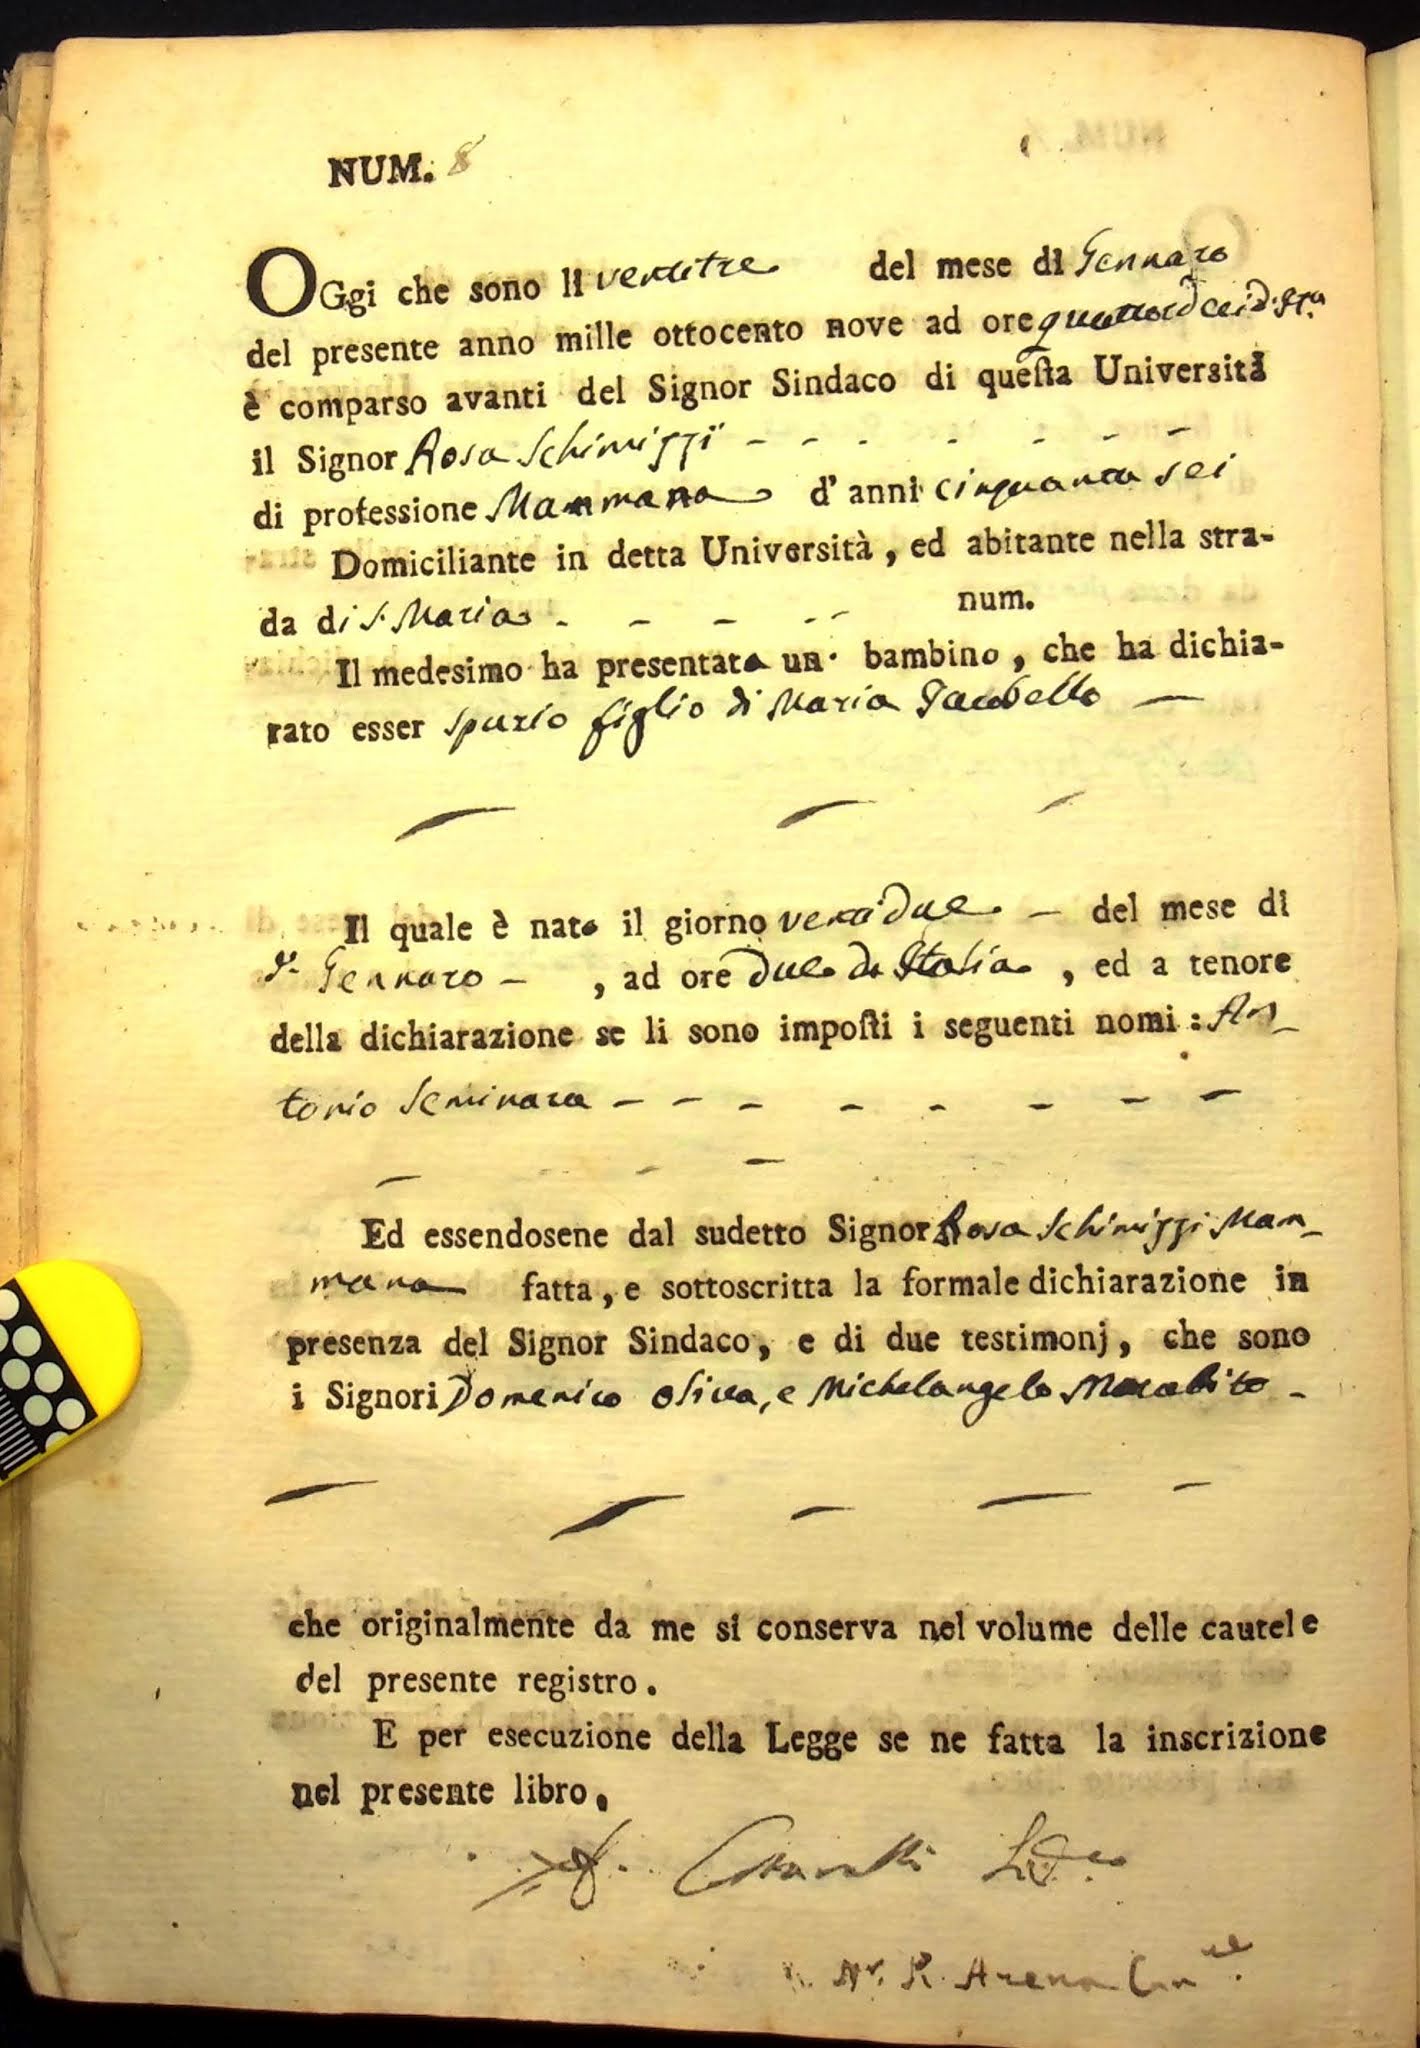 NUM. 8
OGgi che sono li ventitre del mese di Gennaro
del presente anno mille ottocento nove ad ore quattordeci d'It.a
è comparso avanti del Signor Sindaco di questa Università
il Signor Rosa Schimizzi - - - - - - -
di professione Mammana d' anni cinquanta sei
Domiciliante in detta Università, ed abitante nella stra-
da di S. Maria - - - - - num.
Il medesimo ha presentata un bambino, che ha dichia-
rato esser spurio figlio di Maria —
Il quale è nato il giorno venti due — del mese di
d. Gennaro — , ad ore due d' Italia , ed a tenore
della dichiarazione se li sono imposti i seguenti nomi : An-
tonio Seminara - - - - - - - -
Ed essendosene dal sudetto Signor Rosa Schimizzi Mam-
mana fatta, e sottoscritta la formale dichiarazione in
presenza del Signor Sindaco, e di due testimonj, che sono
i Signori Domenico Oliva, e Michelangelo Morabito -
che originalmente da me si conserva nel volume delle cautele
del presente registro.
E per esecuzione della Legge se ne fatta la inscrizione
nel presente libro.
N.r R. Arena